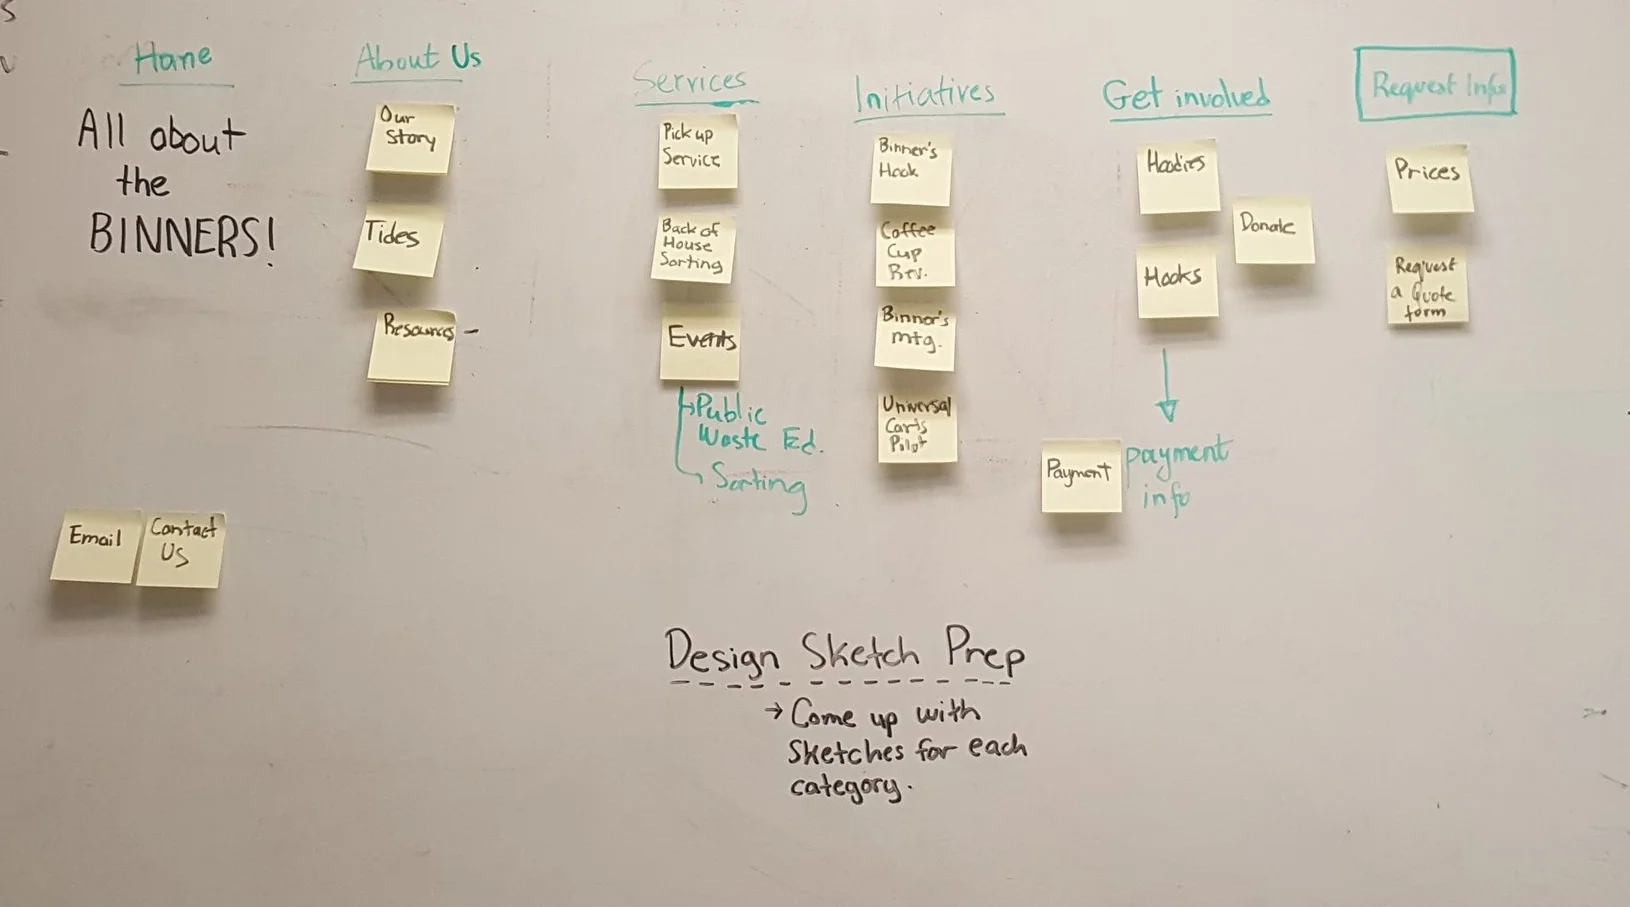 Home
All about
the
BINNERS!
Email
Contact
Us
About Us
Our
Story
Tides
Resources –
Services
Pick up
Service
Back of
House
Sorting
Events
Public
Waste Ed.
Sorting
Initiatives
Binner's
Hook
Coffee
Cup
Rev.
Binner's
mtg.
Universal
Carts
Pilot
Get involved
Hoodies
Donate
Hooks
Payment
payment
info
Request Info
Prices
Request
a Quote
form
Design Sketch Prep
→ Come up with
Sketches for each
category.